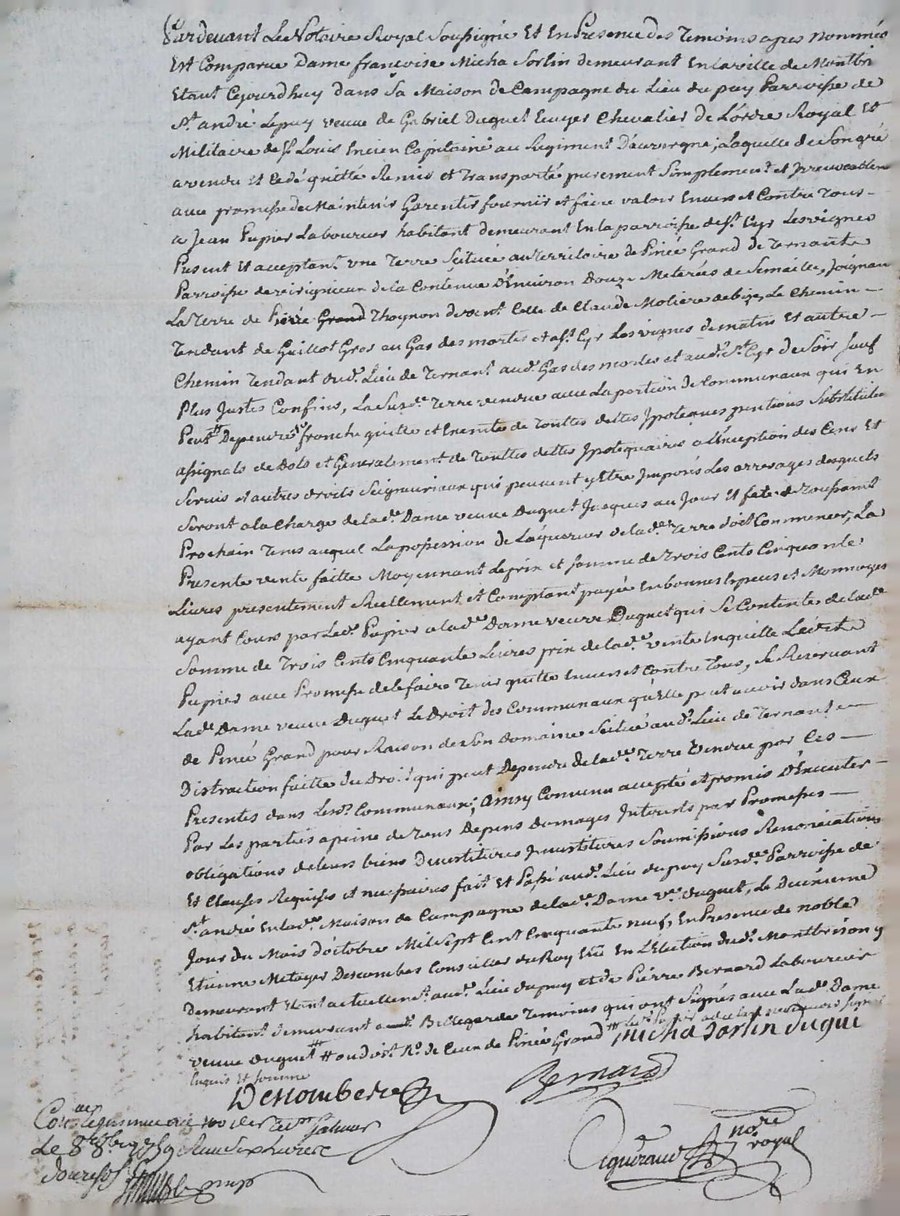 Pardevant Le Notaire Royal Soussigné Et En Presence des Temoins apres nommés
Est Comparue Dame francoise Micha Sorlin demeurant En la ville de Montbri
Etant Cejourdhuy dans Sa Maison de Campagne du Lieu du puy Parroisse de
St. andré Lepuy veuve de Gabriel Duguet Ecuyer Chevalier de L'ordre Royal Et
Militaire de St. Louis Encien Capitaine au Regiment D'auvergne, Laquelle de Son gré
a vendu Et Cedé quitté Remis et Transporté purement Simplement et Irrevocablem
avec promesse de Maintenir Garentir fournir et faire valoir Envers et Contre Tous
a Jean Pupier Laboureur habitant demeurant En la parroisse de St. Cyr Les vignes
Present Et acceptant. Une Terre Scituée au territoire de Pinée Grand de Ternant
Parroisse de la Contenue D'Environ Douze Meterées de Semaille, Joignan
La Terre de Pierre Thognon de vent Celle de Claude Moliere de bize, Le Chemin
Tendant de Guillot Gros au Gas des mortes et a St. Cyr Les vignes de matin Et autre
Chemin Tendant dud. Lieu de Ternant aud. Gas des mortes et aud. St. Cyr de Soir Sauf
Plus Justes Confins, La Susd. Terre vendue avec La portion de Communaux qui En
Peut Dependre franche quitte et Exempte de Touttes dettes Ypoteques pentions Substitution
assignats de Dots et Generalement de Touttes dettes Ypotequaires a L'exception des Cens Et
Servis et autres droits Seigneuriaux qui peuvent y Etre Imposés Les arrerages desquels
Seront a la Charge de lad. Dame veuve Duguet Jusques au Jour Et fete de Toussaint
Prochain Tems auquel La possession de L'aquereur de lad. Terre doit Commencer, La
Presente vente faitte Moyennant Le prix et Somme de Trois Cents Cinquante
Livres presentement Reellement et Comptant payée En bonnes Especes et Monnoyes
ayant Cours par Led. Pupier a lad. Dame veuve Duguet qui Se Contente de lad.
Somme de Trois Cents Cinquante Livres prix de lad. vente En quitte Ledit
Pupier avec Promesse de le faire Tenir quitte Envers et Contre Tous, Se Reservant
Lad. Dame veuve Duguet Le Droit des Communaux qu'elle peut avoir dans Ceux
de Pinée Grand pour Raison de Son Domaine Scitué aud. Lieu de Ternant
Distraction faitte du Droit qui peut Dependre de lad. Terre vendue par Ces
Presentes dans Lesd. Communaux; ainsy Convenu accepté et promis D'Executer
Par Les parties a peine de Tous Depens Domages Interets par Promesses
obligations de leurs biens Devestitures Investitures Soumissions Renonciations
Et Clauses Requises et necessaires fait Et Passé aud. Lieu du puy Susd. Parroisse de
St. andré En lad. Maison de Campagne de lad. Dame ve. Duguet, Le Deuxieme
Jour du Mois d'octobre Mil Sept Cent Cinquante neuf, En Presence de noble
Etienne Metayer Descombes Conseiller du Roy En L'Election dud. Montbrison y
Demeurant Etant actuellement aud. Lieu du puy et de Pierre Bernard Laboureur
habitant demeurant a Bellegarde Temoins qui ont Signés avec Lad. Dame
veuve Duguet de Ceux de Pinée Grand
requis Et Somme
micha Sorlin Dugué
Descombes
Bernard
Le 8 8bre 1759
notre
royal